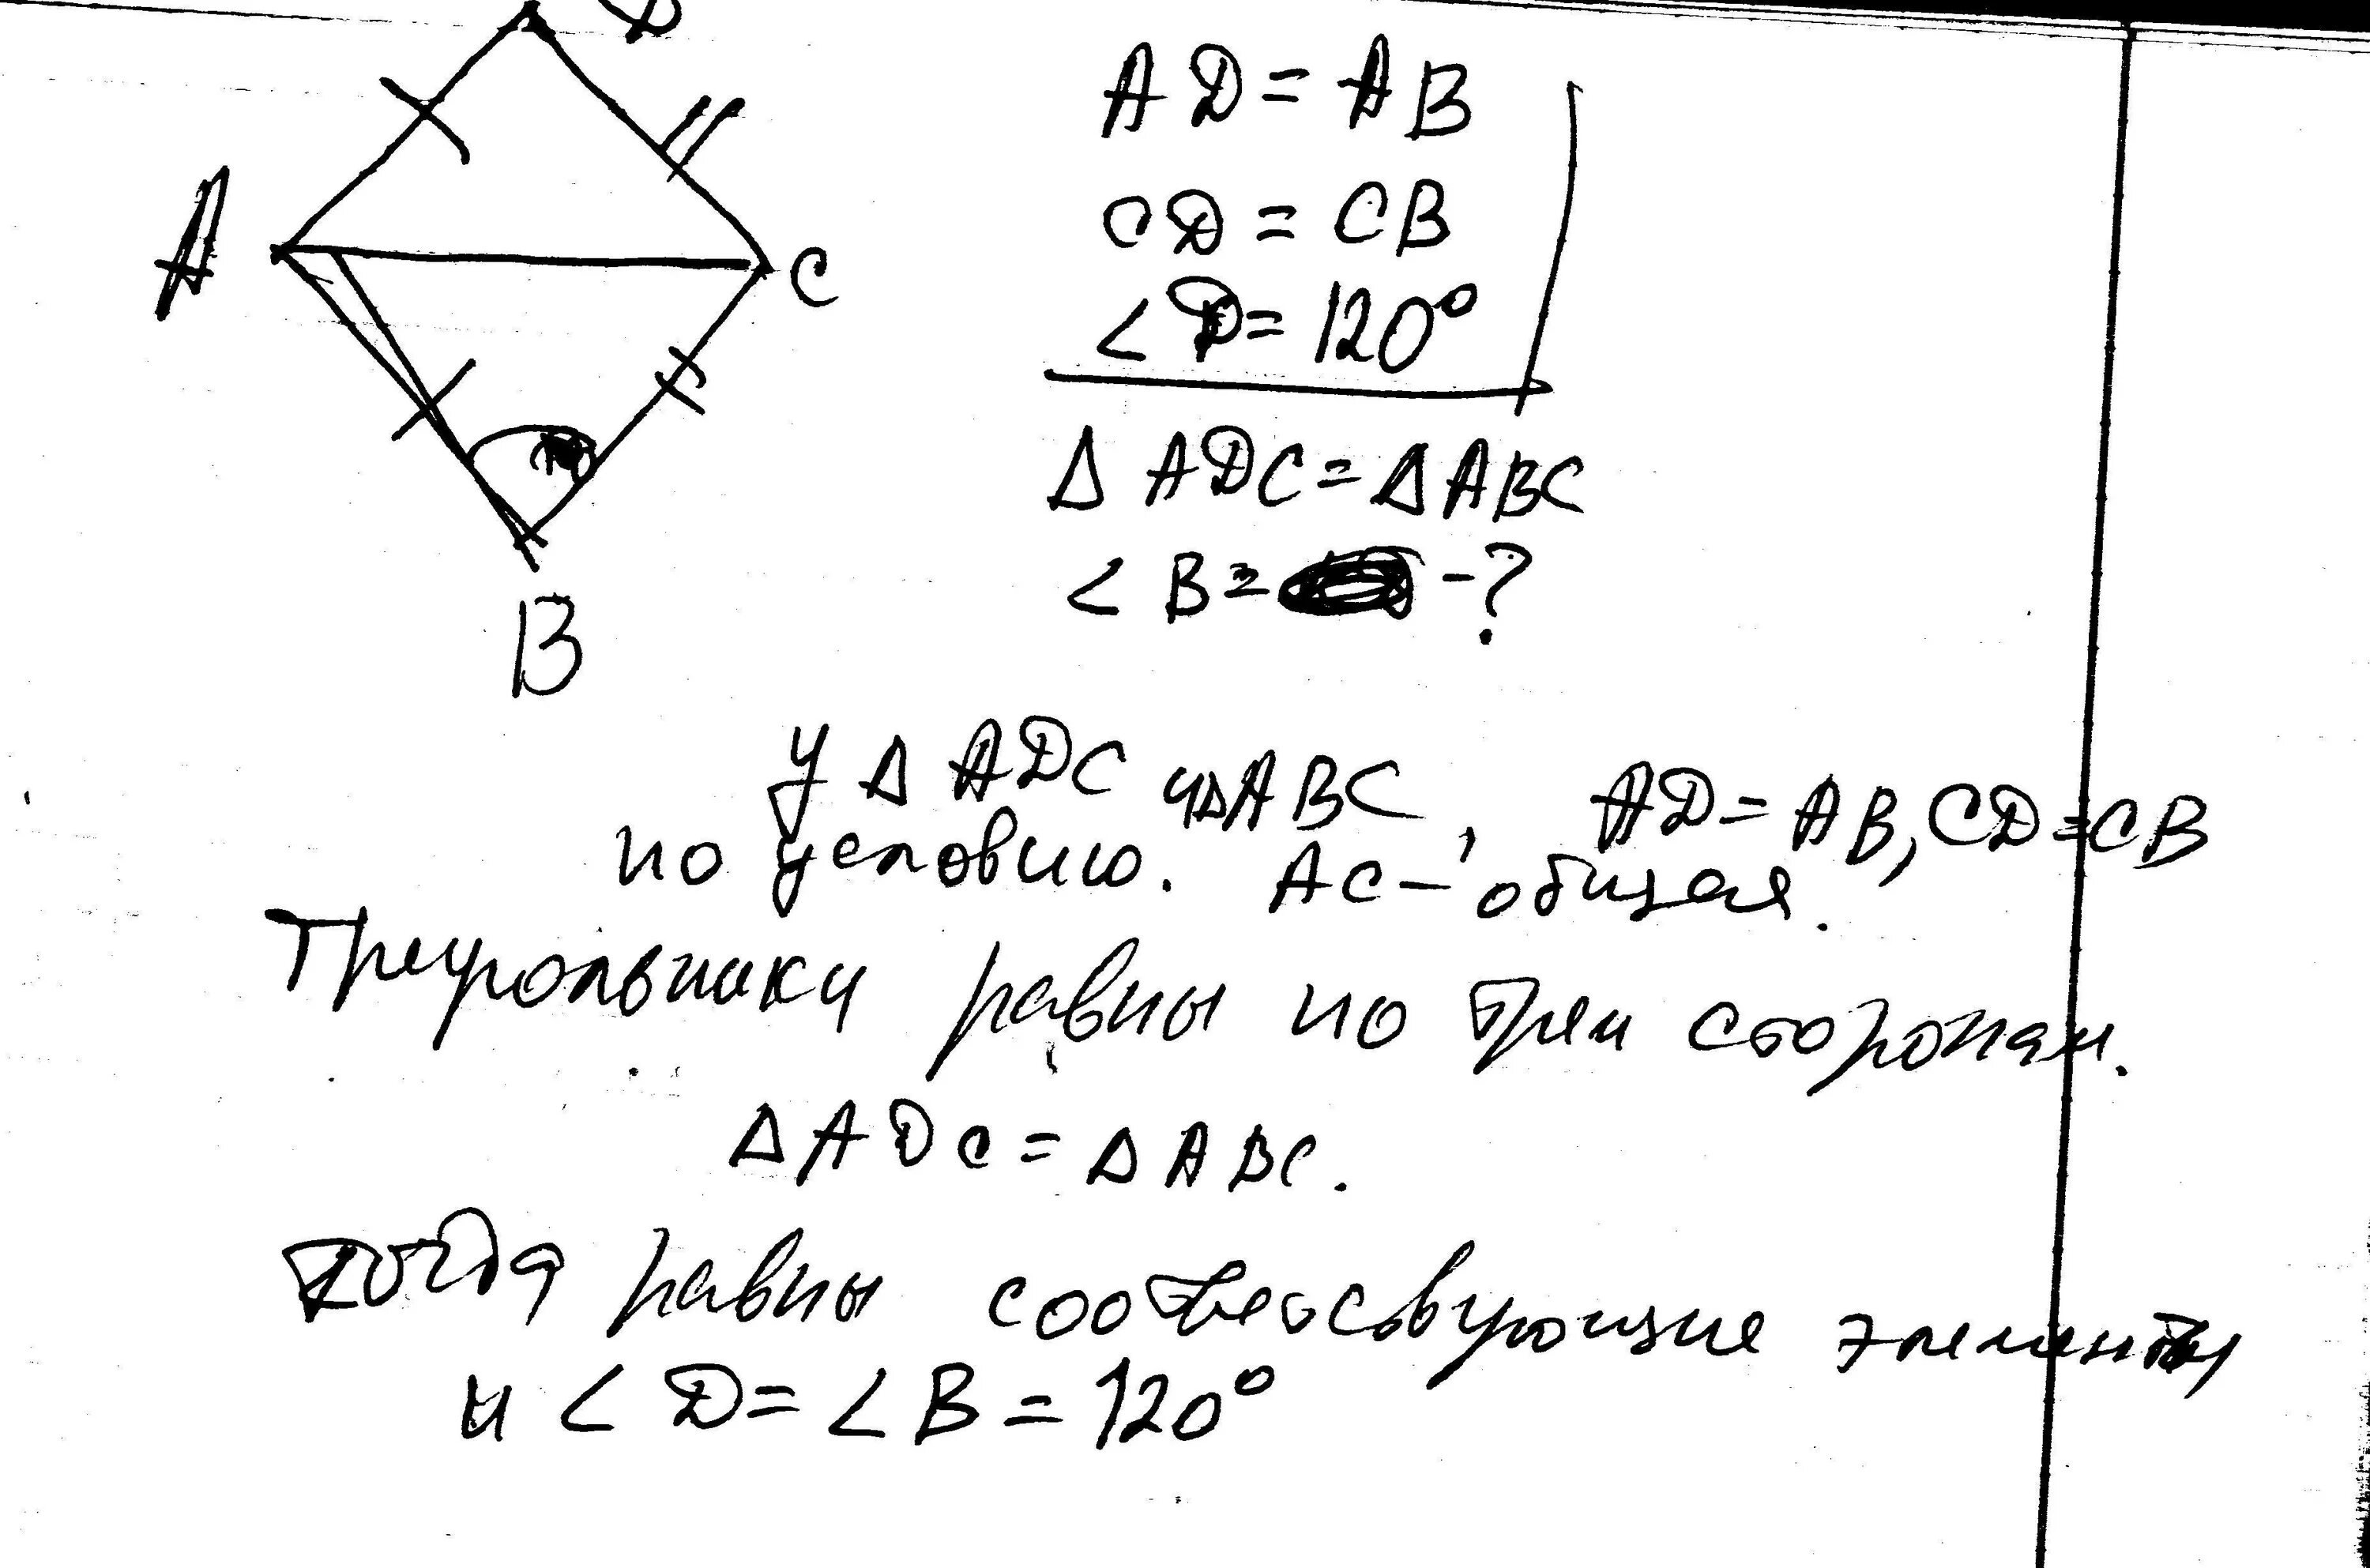 D
A
C
B
AD = AB
CD = CB
< D = 120°
Δ ADC = Δ ABC
< B = - ?
У Δ ADC и Δ ABC, AD = AB, CD = CB
по условию. AC – общая.
Треугольники равны по трем сторонам.
Δ ADC = Δ ABC.
тогда равны соответсвующие элементы
и < D = < B = 120°